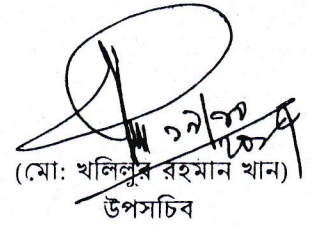 (মো: খলিলুর রহমান খান)
উপসচিব